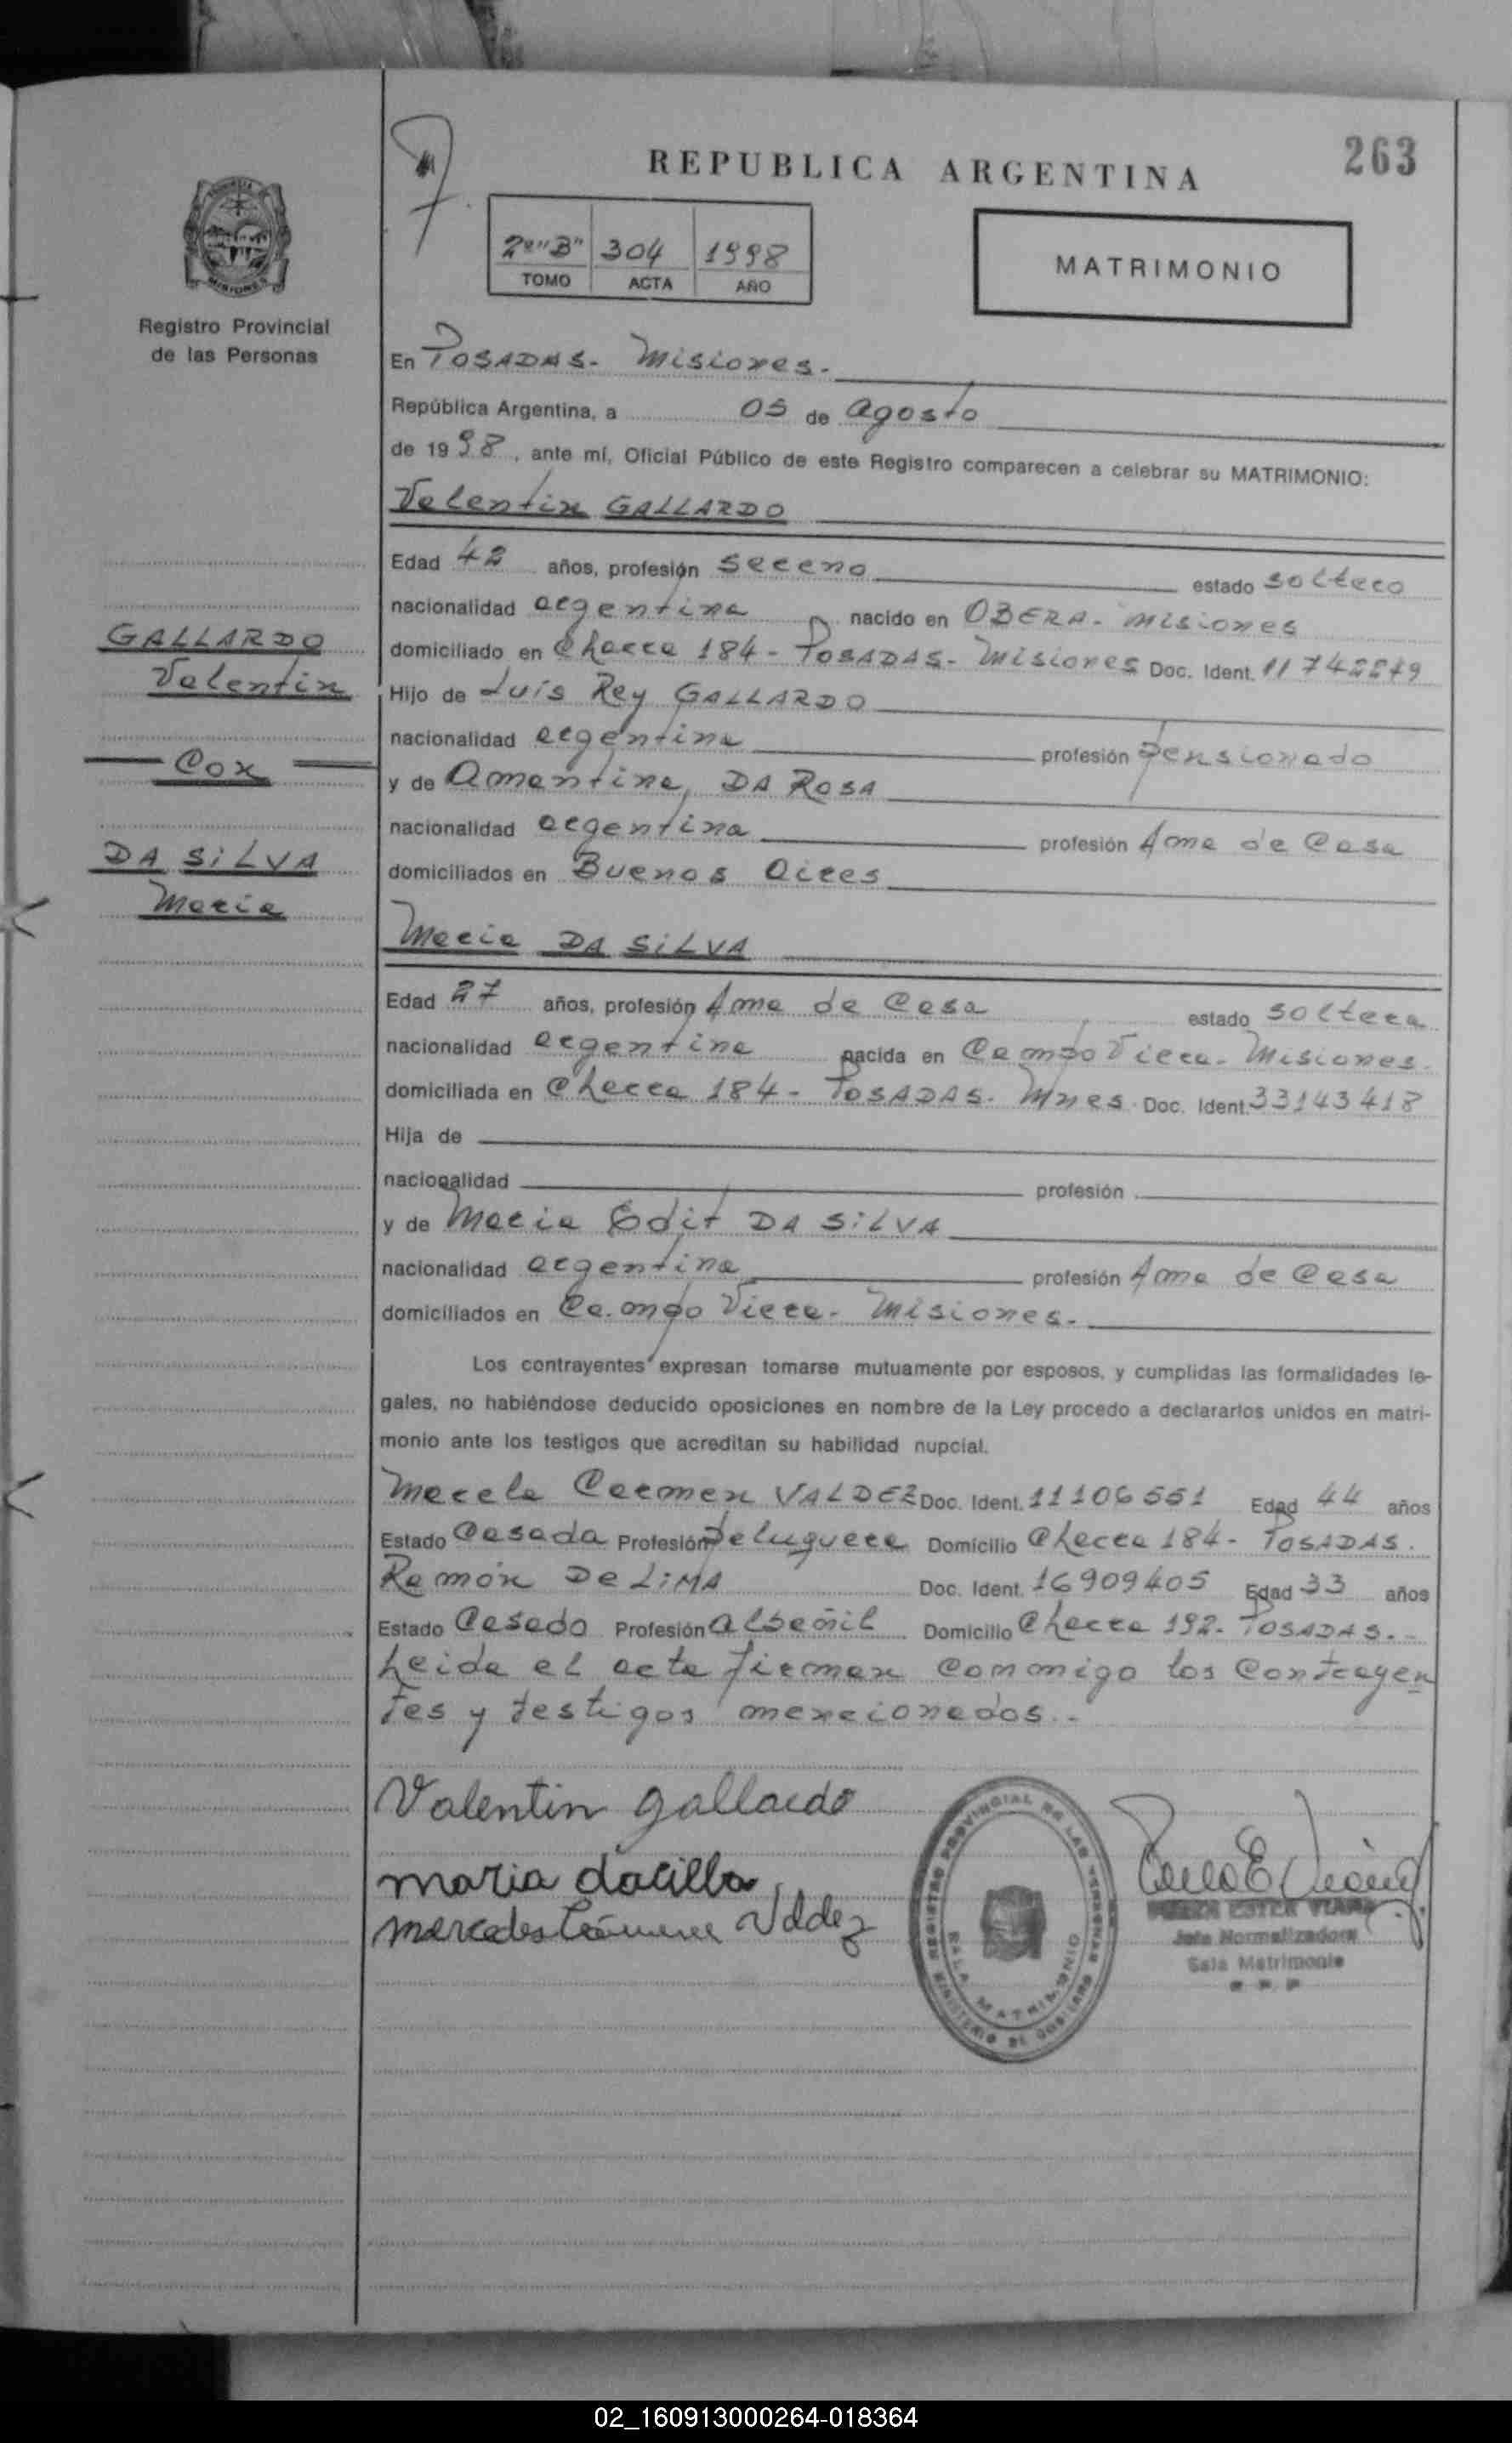 REPUBLICA ARGENTINA
263
2º "B" 304 1998
TOMO ACTA AÑO
MATRIMONIO
MISIONES
Registro Provincial
de las Personas
GALLARDO
Valentin
Con
DA SILVA
Maria
En POSADAS - Misiones.
República Argentina, a 05 de agosto
de 1998, ante mí, Oficial Público de este Registro comparecen a celebrar su MATRIMONIO:
Valentin GALLARDO
Edad 42 años, profesión sereno estado soltero
nacionalidad argentina nacido en OBERA - Misiones
domiciliado en Charca 184 - POSADAS - Misiones Doc. Ident.
Hijo de Luis Rey GALLARDO
nacionalidad argentina profesión Pensionado
y de Amantina DA ROSA
nacionalidad argentina profesión Ama de Casa
domiciliados en Buenos Aires
Maria DA SILVA
Edad 27 años, profesión Ama de Casa estado soltera
nacionalidad argentina nacida en Campo Viera - Misiones.
domiciliada en Charca 184 - POSADAS - Mnes. Doc. Ident. 33143418
Hija de
nacionalidad profesión
y de Maria Edit DA SILVA
nacionalidad argentina profesión Ama de Casa
domiciliados en Campo Viera - Misiones.
Los contrayentes expresan tomarse mutuamente por esposos, y cumplidas las formalidades le-
gales, no habiéndose deducido oposiciones en nombre de la Ley procedo a declararlos unidos en matri-
monio ante los testigos que acreditan su habilidad nupcial.
Marcela Carmen VALDEZ Doc. Ident. 11106551 Edad 44 años
Estado Casada Profesión Peluquera Domicilio Charca 184 - POSADAS.
Ramón De LIMA Doc. Ident. 16909405 Edad 33 años
Estado Casado Profesión albañil Domicilio Charca 192 - POSADAS. -
Leida el acta firman conmigo los Contrayen
tes y testigos mencionados. -
Valentin gallardo
maria dacilba
mercedes Valdez
REGISTRO PROVINCIAL DE LAS PERSONAS
MINISTERIO DE GOBIERNO
SALA MATRIMONIO
ESTER
Jefe Normalizadora
Sala Matrimonio
02_160913000264-018364